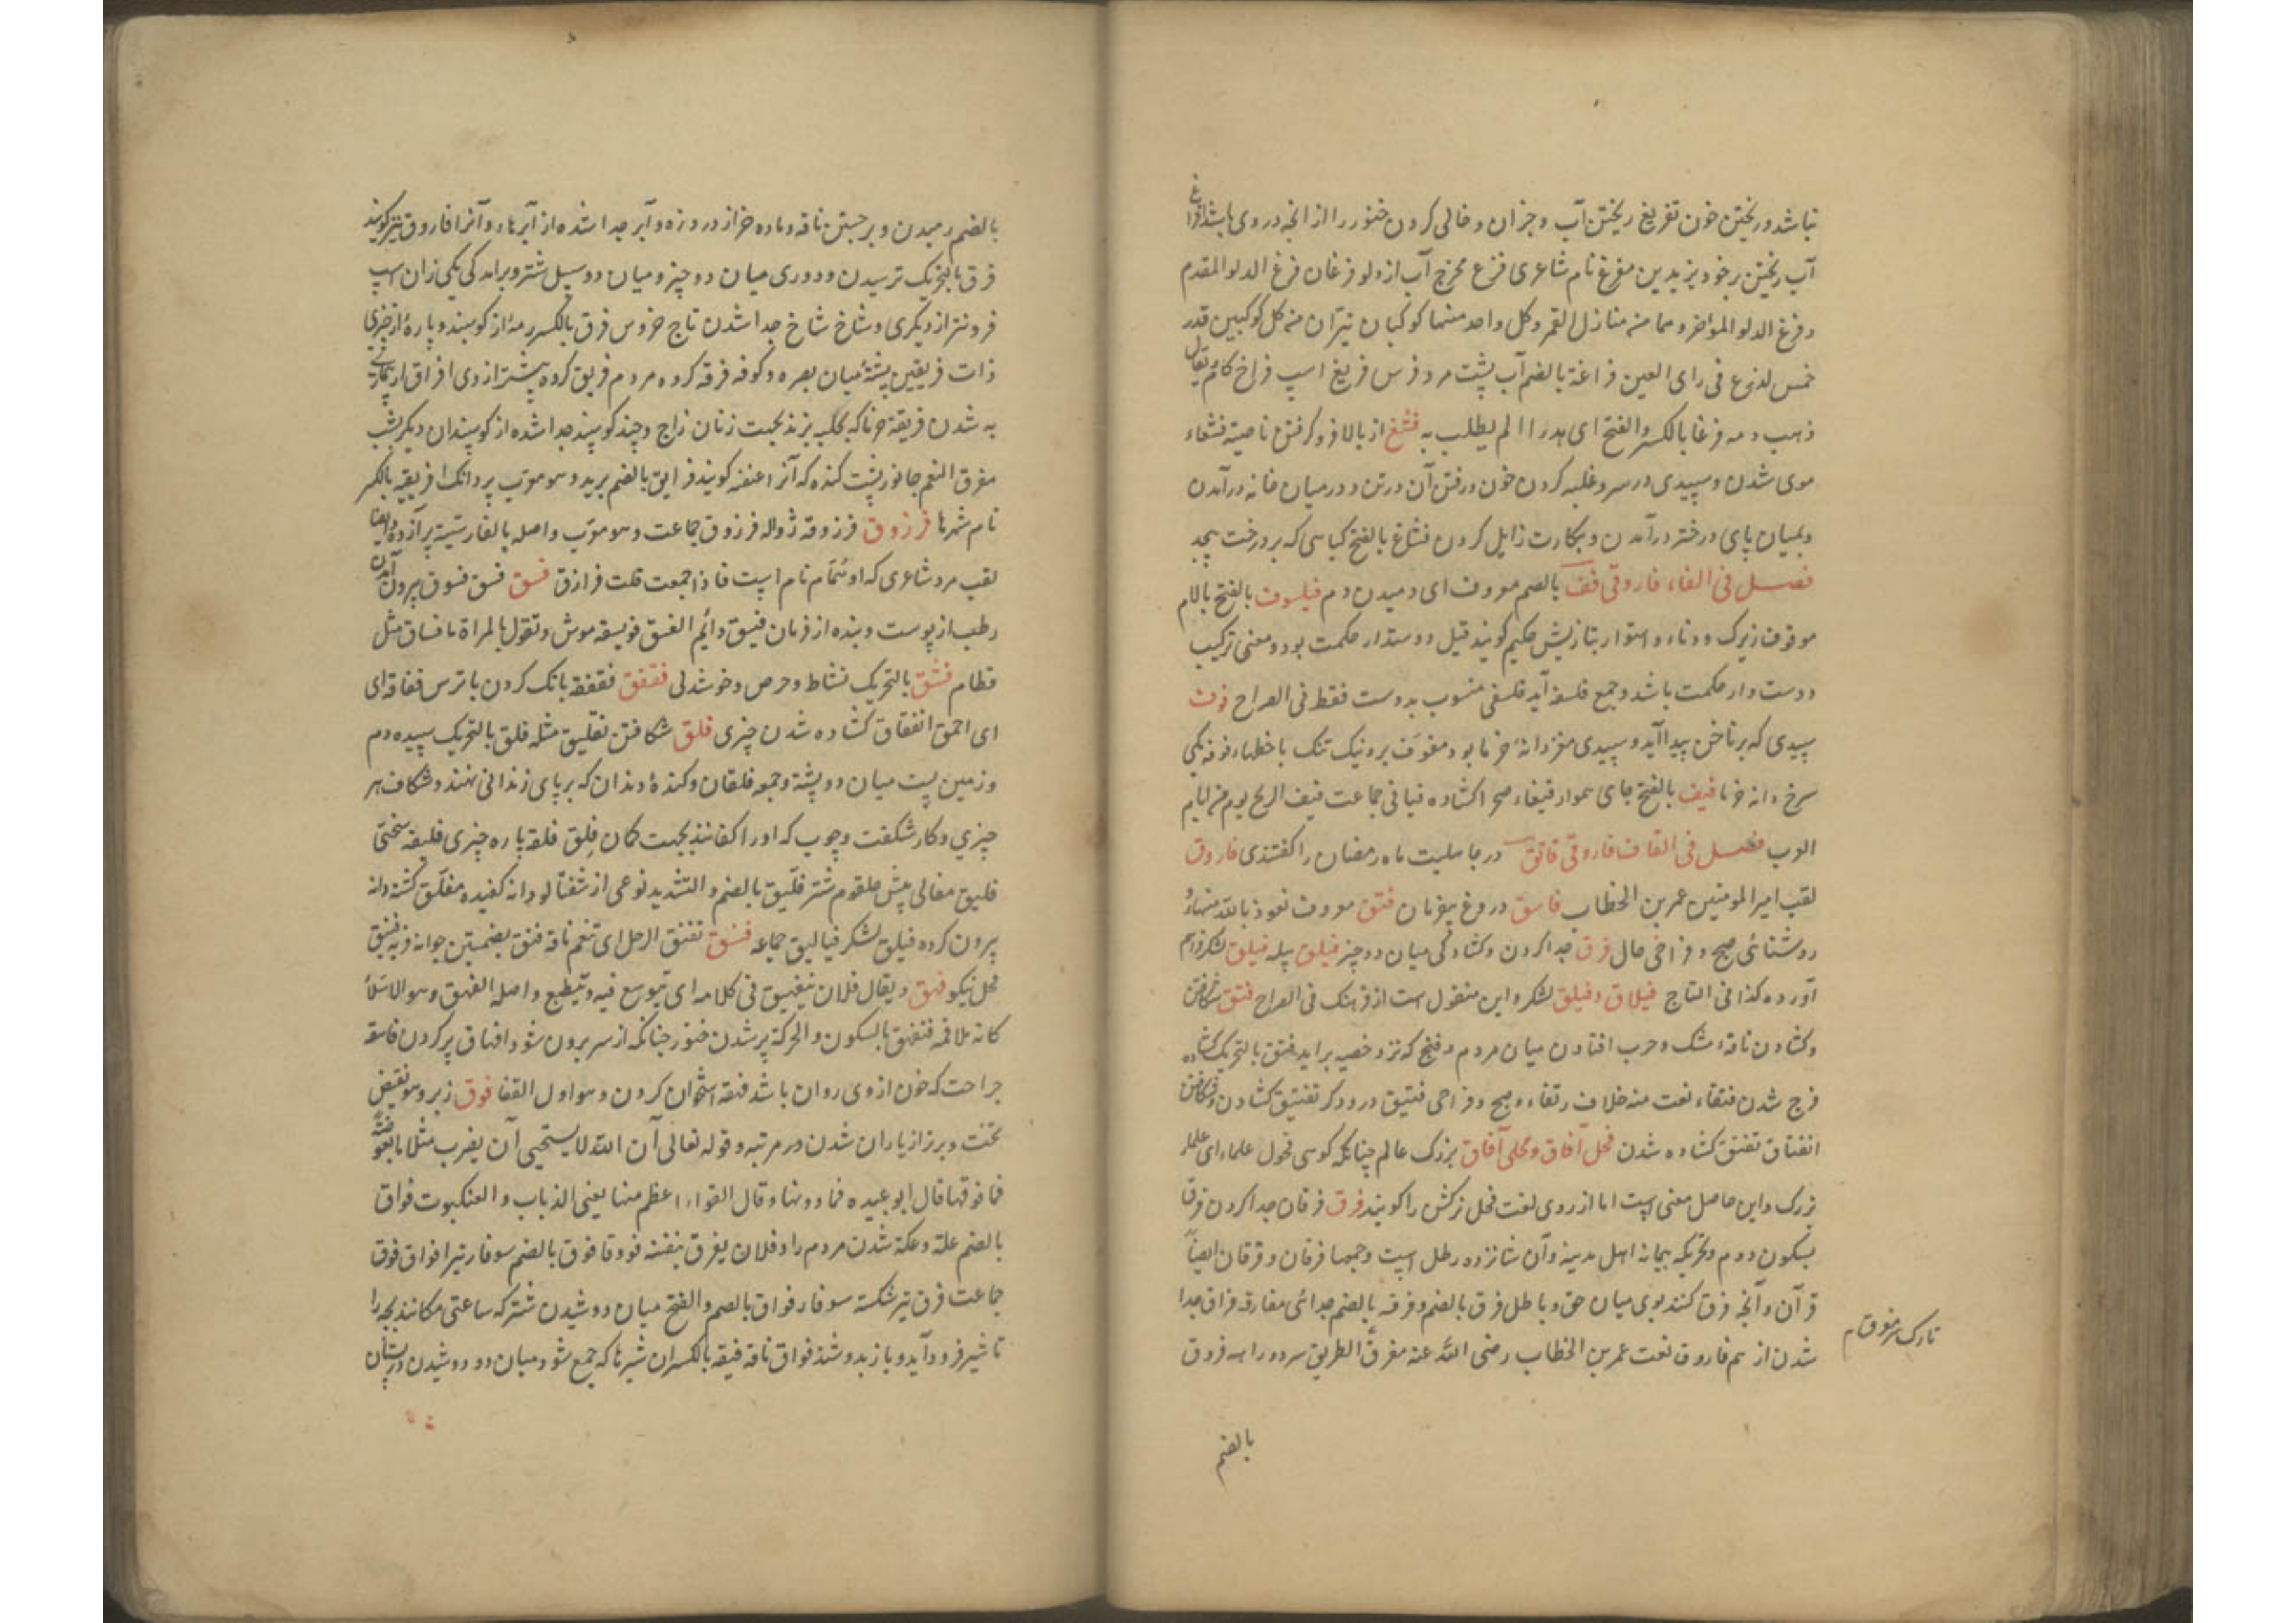 تباشد و ریختن خون تفریغ ریختن آب و جز آن و خالی کردن خنور را از انچه در وی باشد افراغ
آب ریختن بر خود یزید بن مفرغ نام شاعری فرغ مخرج آب از دلو فرغان فرغ الدلو المقدم
و فرغ الدلو الموخر و هما من منازل القمر و کل واحد منهما کوکبان نیران من کل کوکبین قدر
خمس اذرع فی رای العین فراغة بالضم آب پشت مرد فرس فریغ اسپ فراخ کام یقال
ذهب دمه فرغا بالکسر و الفتح ای هدرا لم یطلب به فشغ از بالا فرو گرفتن ناصیة فشغاء
موی شدن و سپیدی در سر و غلبه کردن خون و رفتن آن در تن و در میان خانه در آمدن
و بمیان پای دختر در آمدن و بکارت زایل کردن فشاغ بالفتح گیاهی که بر درخت پیچد
فصل فی الفاء فاروقی فف بالضم معروف ای دمیدن دم فیلسوف بالفتح بالام
موقوف زیرک و دناء و استوار بتازیش حکیم گویند قیل دوستدار حکمت بود و معنی ترکیب
دوست دار حکمت باشد و جمع فلسفه آید فلسفی منسوب بدوست فقط فی الصراح فوف
سپیدی که بر ناخن پیدا آید و سپیدی مغز دانۀ خرما بود مفوف برد نیک تنک با خطها فوفه یکی
سرخ دانه خرما فیف بالفتح جای هموار فیفاء صحرا کشاده فیافی جماعت فیف الریح یوم من ایام
العرب فصل فی القاف فاروقی فاتق در جاهلیت ماه رمضان را گفتندی فاروق
لقب امیر المومنین عمر بن الخطاب فاسق دروغ بیفرمان فتق معروف نعوذ بالله منهاء
روشنائی صبح و فراخی حال فرق جدا کردن و کشادگی میان دو چیز فیلق پیله فیلق لشکر فراهم
آورده کذا فی التاج فیلاق و فیلق لشکر و این منقول است از فرهنگ فی الصراح فتق شکافتن
و کشادن نافۀ مشک و حرب افتادن میان مردم و فنج که نزد خصیه بر آید فتق بالتحریک کشاده
فرج شدن فتقاء نعت منه خلاف رتقاء و صبح و فراخی فتیق درودگر تفتیق کشادن و شکافتن
انفتاق تفتق کشاده شدن فحل آفاق و محلی آفاق بزرگ عالم چنانکه گوسی فحول علماء ای علماء
بزرگ و این حاصل معنی است اما از روی لغت فحل نرکش را گویند فرق فرقان جدا کردن فرق
بسکون دوم و تحریکه پیمانه اهل مدینه و آن شانزده رطل است و جمعها فرقان و فرقان ایضاً
قرآن و آنچه فرق کنند بوی میان حق و باطل فرق بالضم و فرقه بالضم جدائی مفارقه فراق جدا
شدن از هم فاروق نعت عمر بن الخطاب رضی الله عنه مفرق الطریق سر دو راهه فروق
تارک سر مفرق م
بالضم
بالضم رمیدن و برجستن ناقه و ماده خر از درد زه و آبر جدا شده از آبرها و آنرا فاروق نیز گویند
فرق بالتحریک ترسیدن و دوری میان دو چیز و میان دو سبل شتر و برامدگی یکی زران اسپ
فروتر از دیگری و شاخ شاخ جدا شدن تاج خروس فرق بالکسر رمۀ از گوسپند و پارۀ از چیزی
ذات فریقین پشتۀ میان بصره و کوفه فرقه گروه مردم فریق گروه بیشتر از وی افراق از بیماری
به شدن فریقة خرما که بحلبه پزند بجهت زنان زاج و چند گوسپند جدا شده از گوسپندان دیگر بشب
مفرق النعم جانور پشت کنده که آنرا عنفنه گویند فرانق بالضم برید و هو معرب پروانک افریقیه بالکسر
نام شهرها فرزوق فرزوقه ژواله فرزوق جماعت و هو معرب و اصله بالفارسیة برآزده و ایضا
لقب مرد شاعری که او همّام نام است فاذا جمعت قلت فرازق فسق فسق فسوق بیرون آمدن
رطب از پوست و بنده از فرمان فسیق دائم الفسق فویسقه موش و تقول للمراة یا فساق مثل
قطام فشق بالتحریک نشاط و حرص و خوشدلی فقفق فقفقه بانک کردن با ترس فقاقه ای
ای احمق انفقاق کشاده شدن چیزی فلق شکافتن تفلیق مثله فلق بالتحریک سپیده دم
و زمین پست میان دو پشته و جمعه فلقان و کندۀ دندان که بر پای زندانی نهند و شکاف هر
چیزی و کار شکفت و چوب که اورا کفانند بجهت کمان فلق فلقه پاره چیزی فلیقه سختی
فلیق مغالی پیش حلقوم شتر فلّیق بالضم و التشدید نوعی از شفتالو دانه کفیده مفلّق کشته دانه
بیرون کرده فیلق لشکر فیالیق جماعه فنق تفنق الرجل ای تنعم ناقة فنق بضمتین جوانه فربه فنیق
فحل نیکو فهق و یقال فلان یتفیهق فی کلامه ای یتوسع فیه و یتنطع و اصله الفهق و هو الامتلاء
کانه ملا فمه فتفهق بالسکون و الحرکة پر شدن خنور چنانکه از سر بیرون شود افهاق پر کردن فاهقه
جراحت که خون از وی روان باشد فهقه استخوان گردن و هو اول القفا فوق زبر و هو نقیض
تحت و برتر از یاران شدن در مرتبه و قوله تعالی آن الله لا یستحیی آن یضرب مثلا ما بعوضة
فما فوقها قال ابو عبیده فما دونها و قال الفراء اعظم منها یعنی الذباب و العنکبوت فواق
بالضم علة و عکة شدن مردم را و فلان یفوق بنفسه فووقا فوق بالضم سوفار تیر افواق فوق
جماعت فوق تیر شکسته سوفار فواق بالضم و الفتح میان دو شیدن شتر که ساعتی مکانند بچه را
تا شیر فرود آید و باز بدوشند فواق ناقه فیقه بالکسران شیرها که جمع شود میان دو دوشیدن در پستان